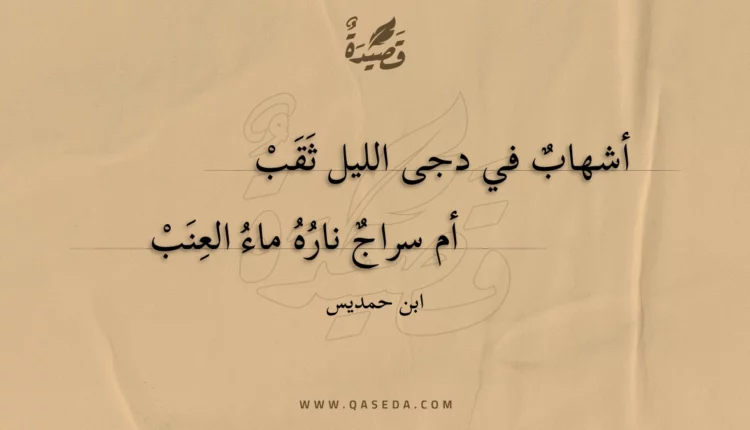 قَصِيدَةٌ
أشهابٌ في دجى الليل ثَقَبْ
أم سراجٌ نارُهُ ماءُ العِنَبْ
ابن حمديس
WWW.QASEDA.COM